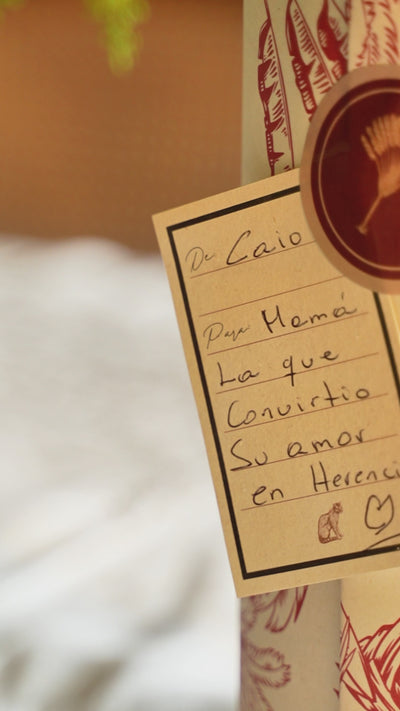 De Caio
Para Mamá
La que
Convirtio
Su amor
en Herenci